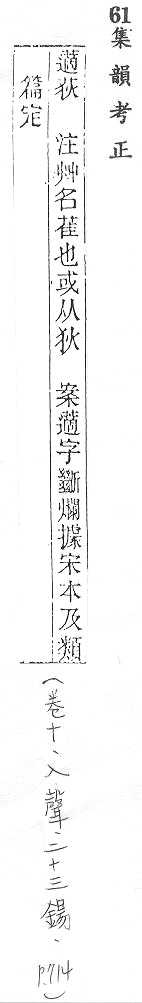 61集韻考正
藡荻 注艸名萑也或从狄 案藡字斷爛據宋本及類
篇定
(卷十、入聲二十三錫、p.714)